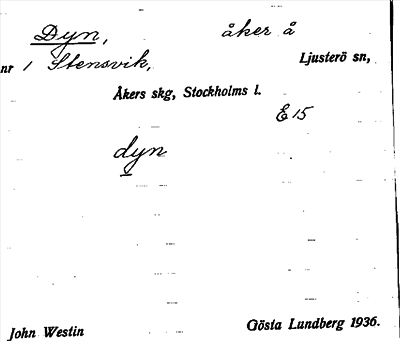 Dyn, åker å
nr 1 Stensvik, Ljusterö sn,
Åkers skg, Stockholms l.
E 15
dyn
John Westin Gösta Lundberg 1936.